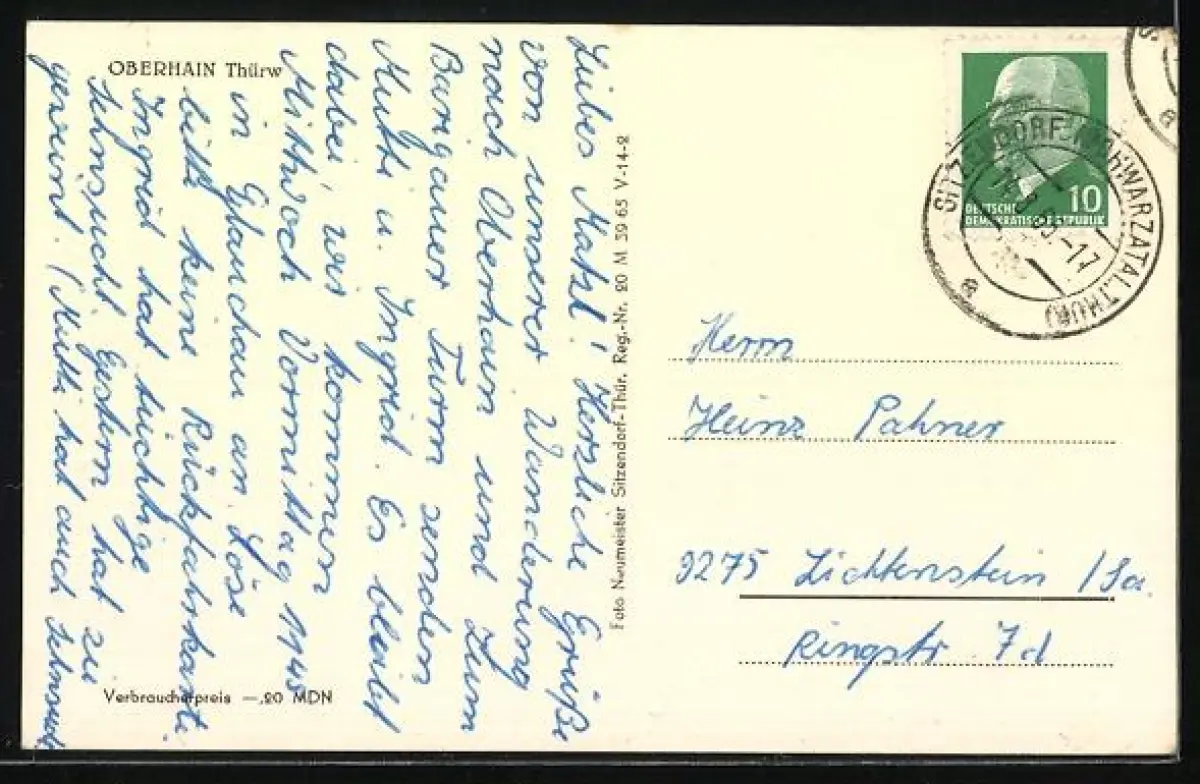 OBERHAIN Thürw
Liebes Matzl! Herzliche Grüße
von unserer Wanderung
nach Oberhain und zum
Barigauer Turm senden
Mutti u. Ingrid. Es bleibt
dabei, wir kommen
Mittwoch Vormittag 1145
in Glauchau an. Löse
bitte keine Rückfahrkarte.
Ingrid hat tüchtige
Sehnsucht. Gestern hat sie
geweint. (Mutti hat auch Sehnsucht
Verbraucherpreis —,20 MDN
Foto Neumeister Sitzendorf-Thür. Reg.-Nr. 20 M 39 65 V-14-2
10
DEUTSCHE
DEMOKRATISCHE REPUBLIK
SITZENDORF (SCHWARZATAL, THÜR)
-17
a
a
Herrn
Heinz Pahner
9275 Lichtenstein / Sa.
Ringstr 7d